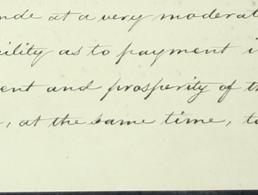 nde at a very moderat
ility as to payment i
ent and prosperity of th
, at the same time, to